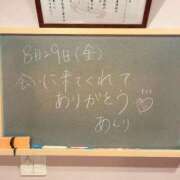 8月29日(金)
会いに来てくれて
ありがとう♡
あんり